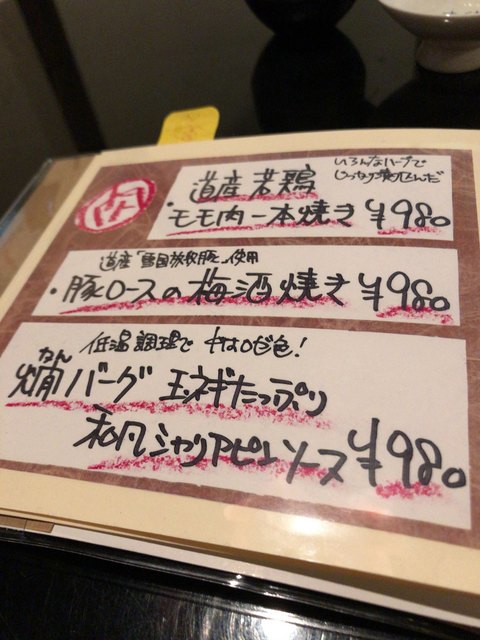 いろんなハーブで
じっくり漬け込んだ
・道産若鶏
モモ肉一本焼き ¥980
道産「雪国放牧豚」使用
・豚ロースの梅酒焼き ¥980
低温調理で 中はロゼ色!
かん
燗バーグ 玉ネギたっぷり
和風シャリアピンソース ¥980